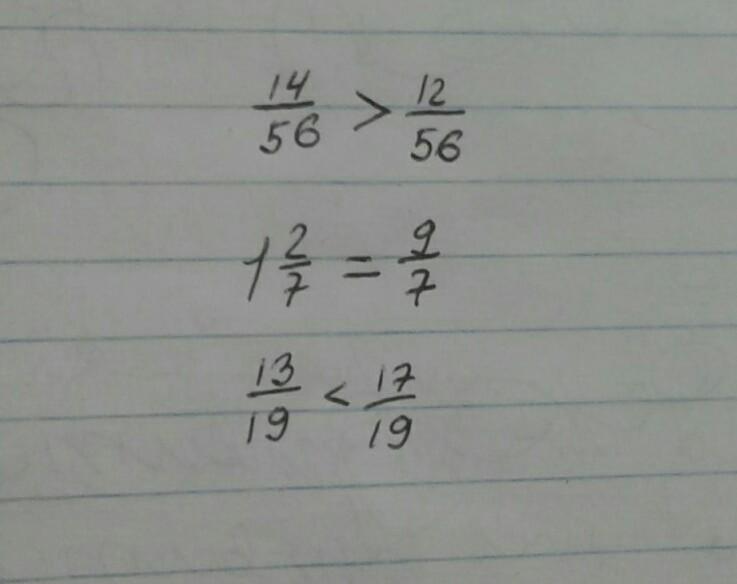 14/56 > 12/56
1 2/7 = 9/7
13/19 < 17/19